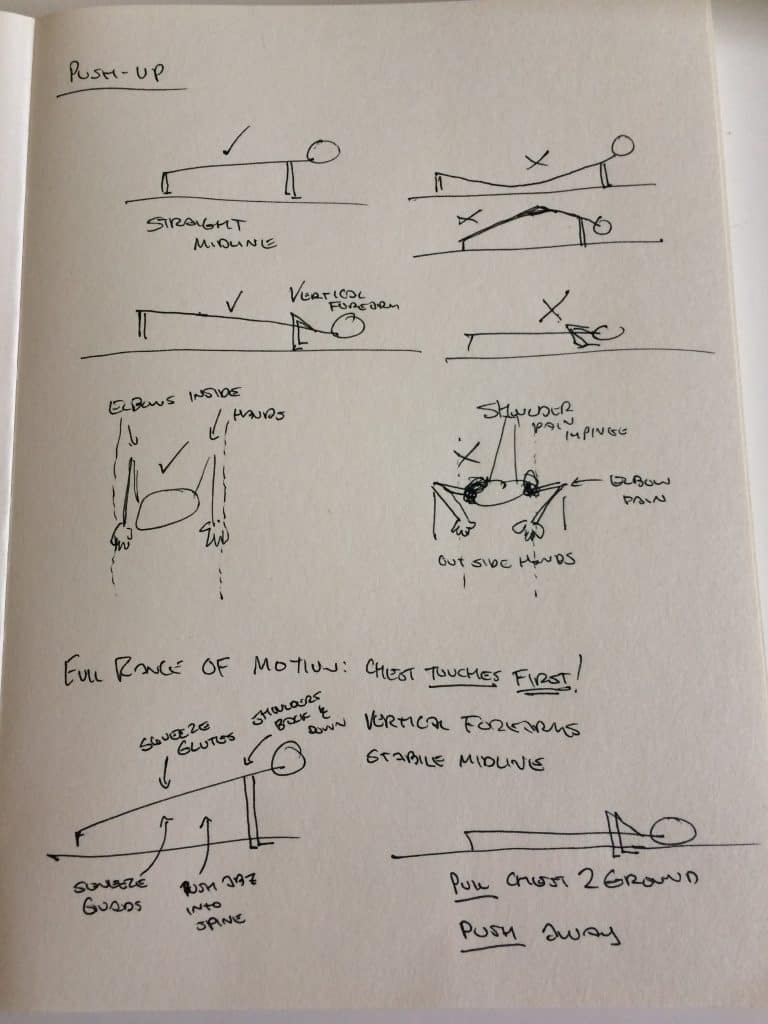 PUSH-UP
STRAIGHT
MIDLINE
VERTICAL
FOREARM
ELBOWS INSIDE
HANDS
SHOULDER
PAIN
IMPINGE
ELBOW
PAIN
OUTSIDE HANDS
FULL RANGE OF MOTION: CHEST TOUCHES FIRST!
VERTICAL FOREARMS
STABILE MIDLINE
SQUEEZE
GLUTES
SHOULDERS
BACK &
DOWN
SQUEEZE
QUADS
PUSH
INTO
SPINE
PULL CHEST 2 GROUND
PUSH AWAY